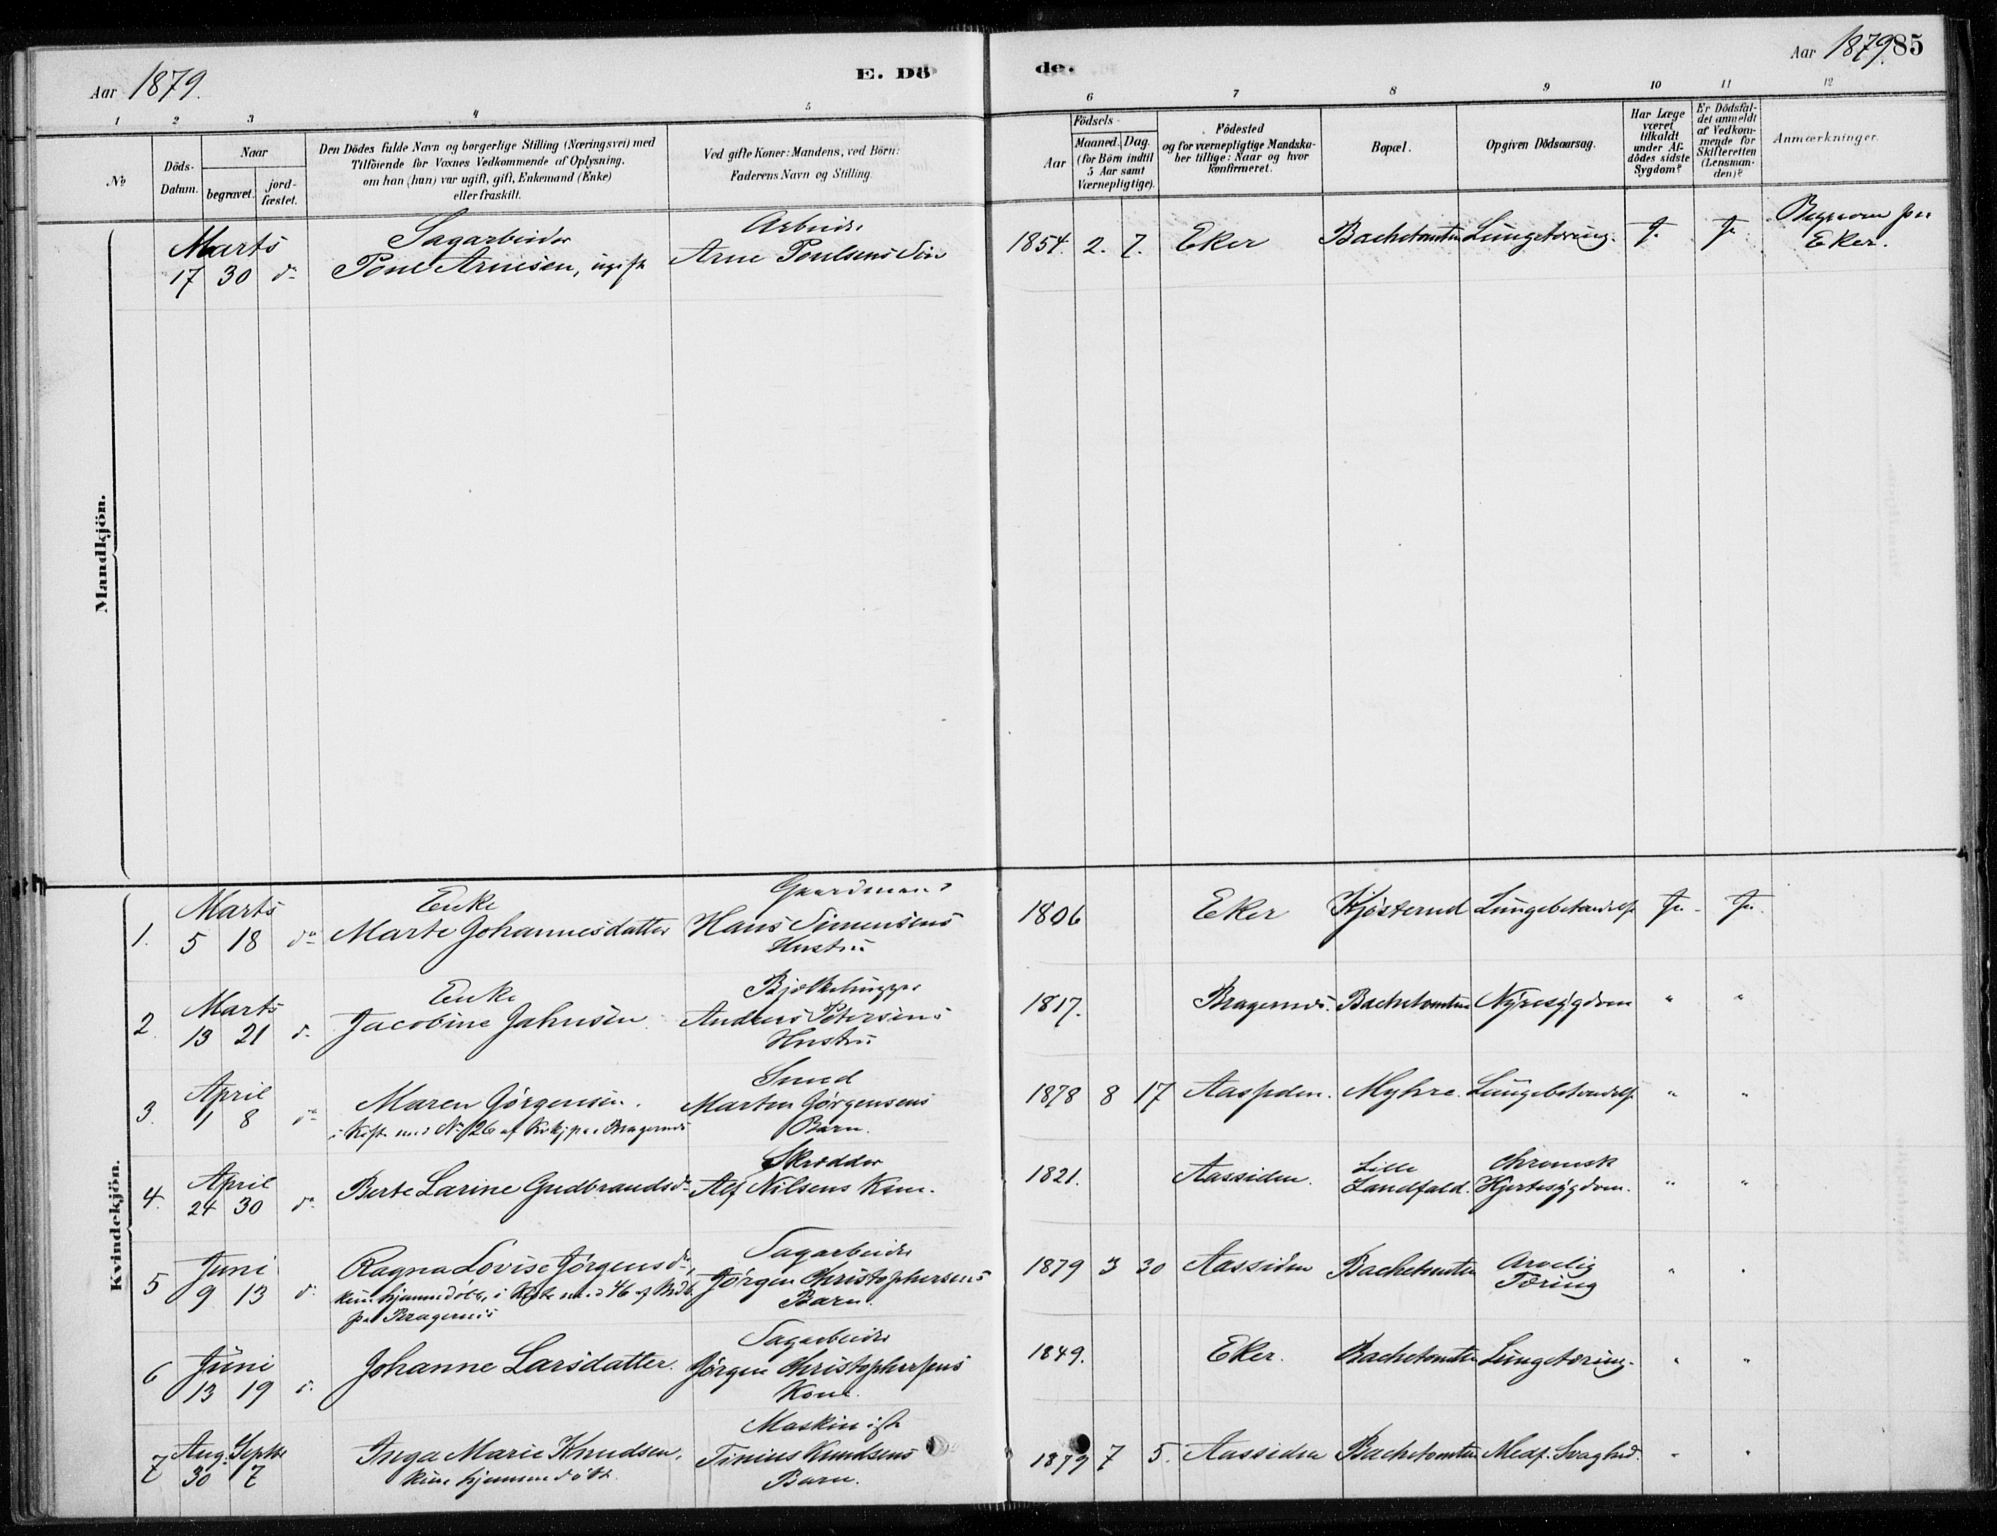 Aar 1879.
E. Dö
de.
Aar 1879.
85
1 2 3 4 5 6 7 8 9 10 11 12
No
Döds-
Datum.
Naar
begravet.
jord-
fæstet.
Den Dödes fulde Navn og borgerlige Stilling (Næringsvei) med
Tilföiende for Voxnes Vedkommende af Oplysning,
om han (hun) var ugift, gift, Enkemand (Enke)
eller fraskilt.
Ved gifte Koner: Mandens, ved Börn:
Faderens Navn og Stilling.
Födsels-
Aar
Maaned. Dag.
(for Börn indtil
5 Aar samt
Værnepligtige).
Födested
og for værnepligtige Mandska-
ber tillige: Naar og hvor
Konfirmeret.
Bopæl.
Opgiven Dödsaarsag.
Har Læge
været
tilkaldt
under Af-
dödes sidste
Sygdom?
Er Dödsfal-
det anmeldt
af Vedkom-
mende for
Skifteretten
(Lensman-
den)?
Anmærkninger.
Mandkjön.
Marts
17 30 do
Sagarbeider
Poul Arnesen, ugift
Arbeider
Arne Poulsens Sön
1854. 2. 7. Eker Bachetomten Lungetæring. J. J.
Begraven paa
Eker.
Kvindekjön.
1. Marts
5 18 do
Enke
Marte Johannesdatter
Gaardmand
Hans Simensens
Hustru
1806 Eker Kjösterud Lungebetændelse Ja. Ja.
2. Marts
13 21 do
Enke
Jacobine Jahnsen
Bjælkehugger
Anders Petersens
Hustru
1817. Bragernes. Bachetomten Nyresygdom " "
3. April
1 8 do
Maren Jörgensen.
i Kiste med No 26 af Mkj paa Bragernes
Smed
Martin Jörgensens
Barn.
1878 8 17 Aassiden. Myhre. Lungebetændelse " "
4. April
24 30 do
Berte Larine Gudbrandsdr
Skrædder
Alf Nilsens Kone.
1821. Aassiden.
Lille
Landfald.
Chronisk
Hjertesygdom. " "
5 Juni
9 13 do
Ragna Lovise Jörgensdr,
kun hjemmedöbt, i Kiste med 46 af
paa Bragernes
Sagarbeider
Jörgen Christophersens
Barn.
1879 3 30 Aassiden Bachetomten
Arvelig
Tæring " "
6 Juni
13 19 do
Johanne Larsdatter.
Sagarbeider
Jörgen Christophersens
Kone.
1849. Eker. Bachetomten Lungetæring. " "
7 Aug. Septbr
30 7
Inga Marie Knudsen,
kun hjemmedöbt.
Maskinist
Tinius Knudsens
Barn.
1879 7 5. Aassiden Bachetomten Medf. Svaghed. " "